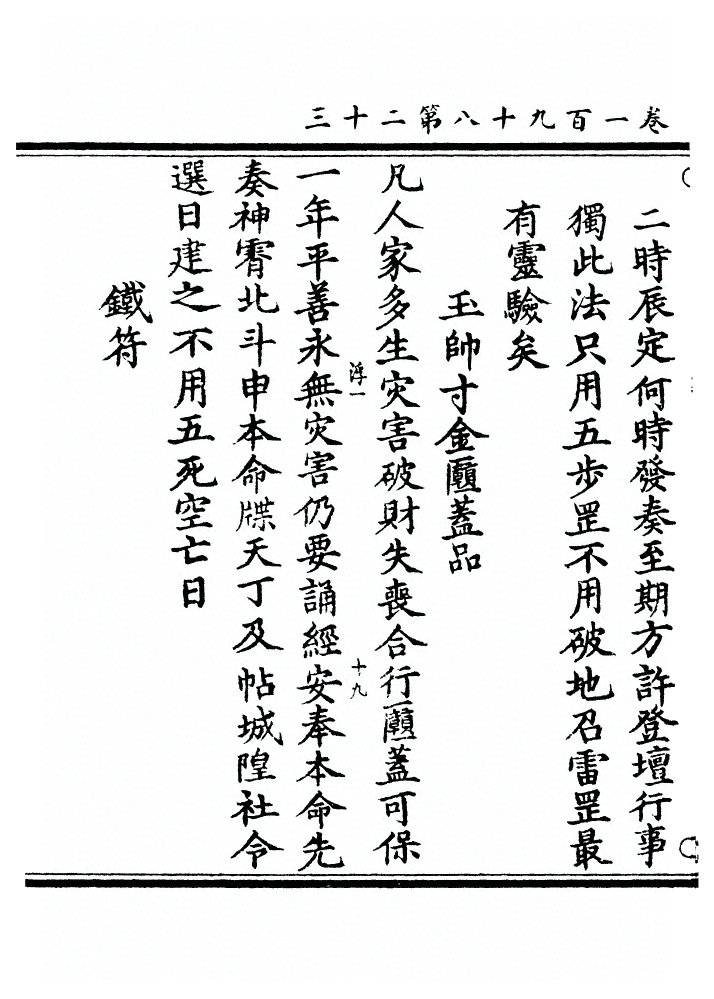 卷一百九十八第二十三
二時辰定何時發奏至期方許登壇行事
獨此法只用五步罡不用破地召雷罡最
有靈驗矣
玉帥寸金匾蓋品
凡人家多生灾害破財失喪合行匾蓋可保
一年平善永無灾害仍要誦經安奉本命先
奏神霄北斗申本命牒天丁及帖城隍社令
選日建之不用五死空亡日
鐵符
浮一
十九